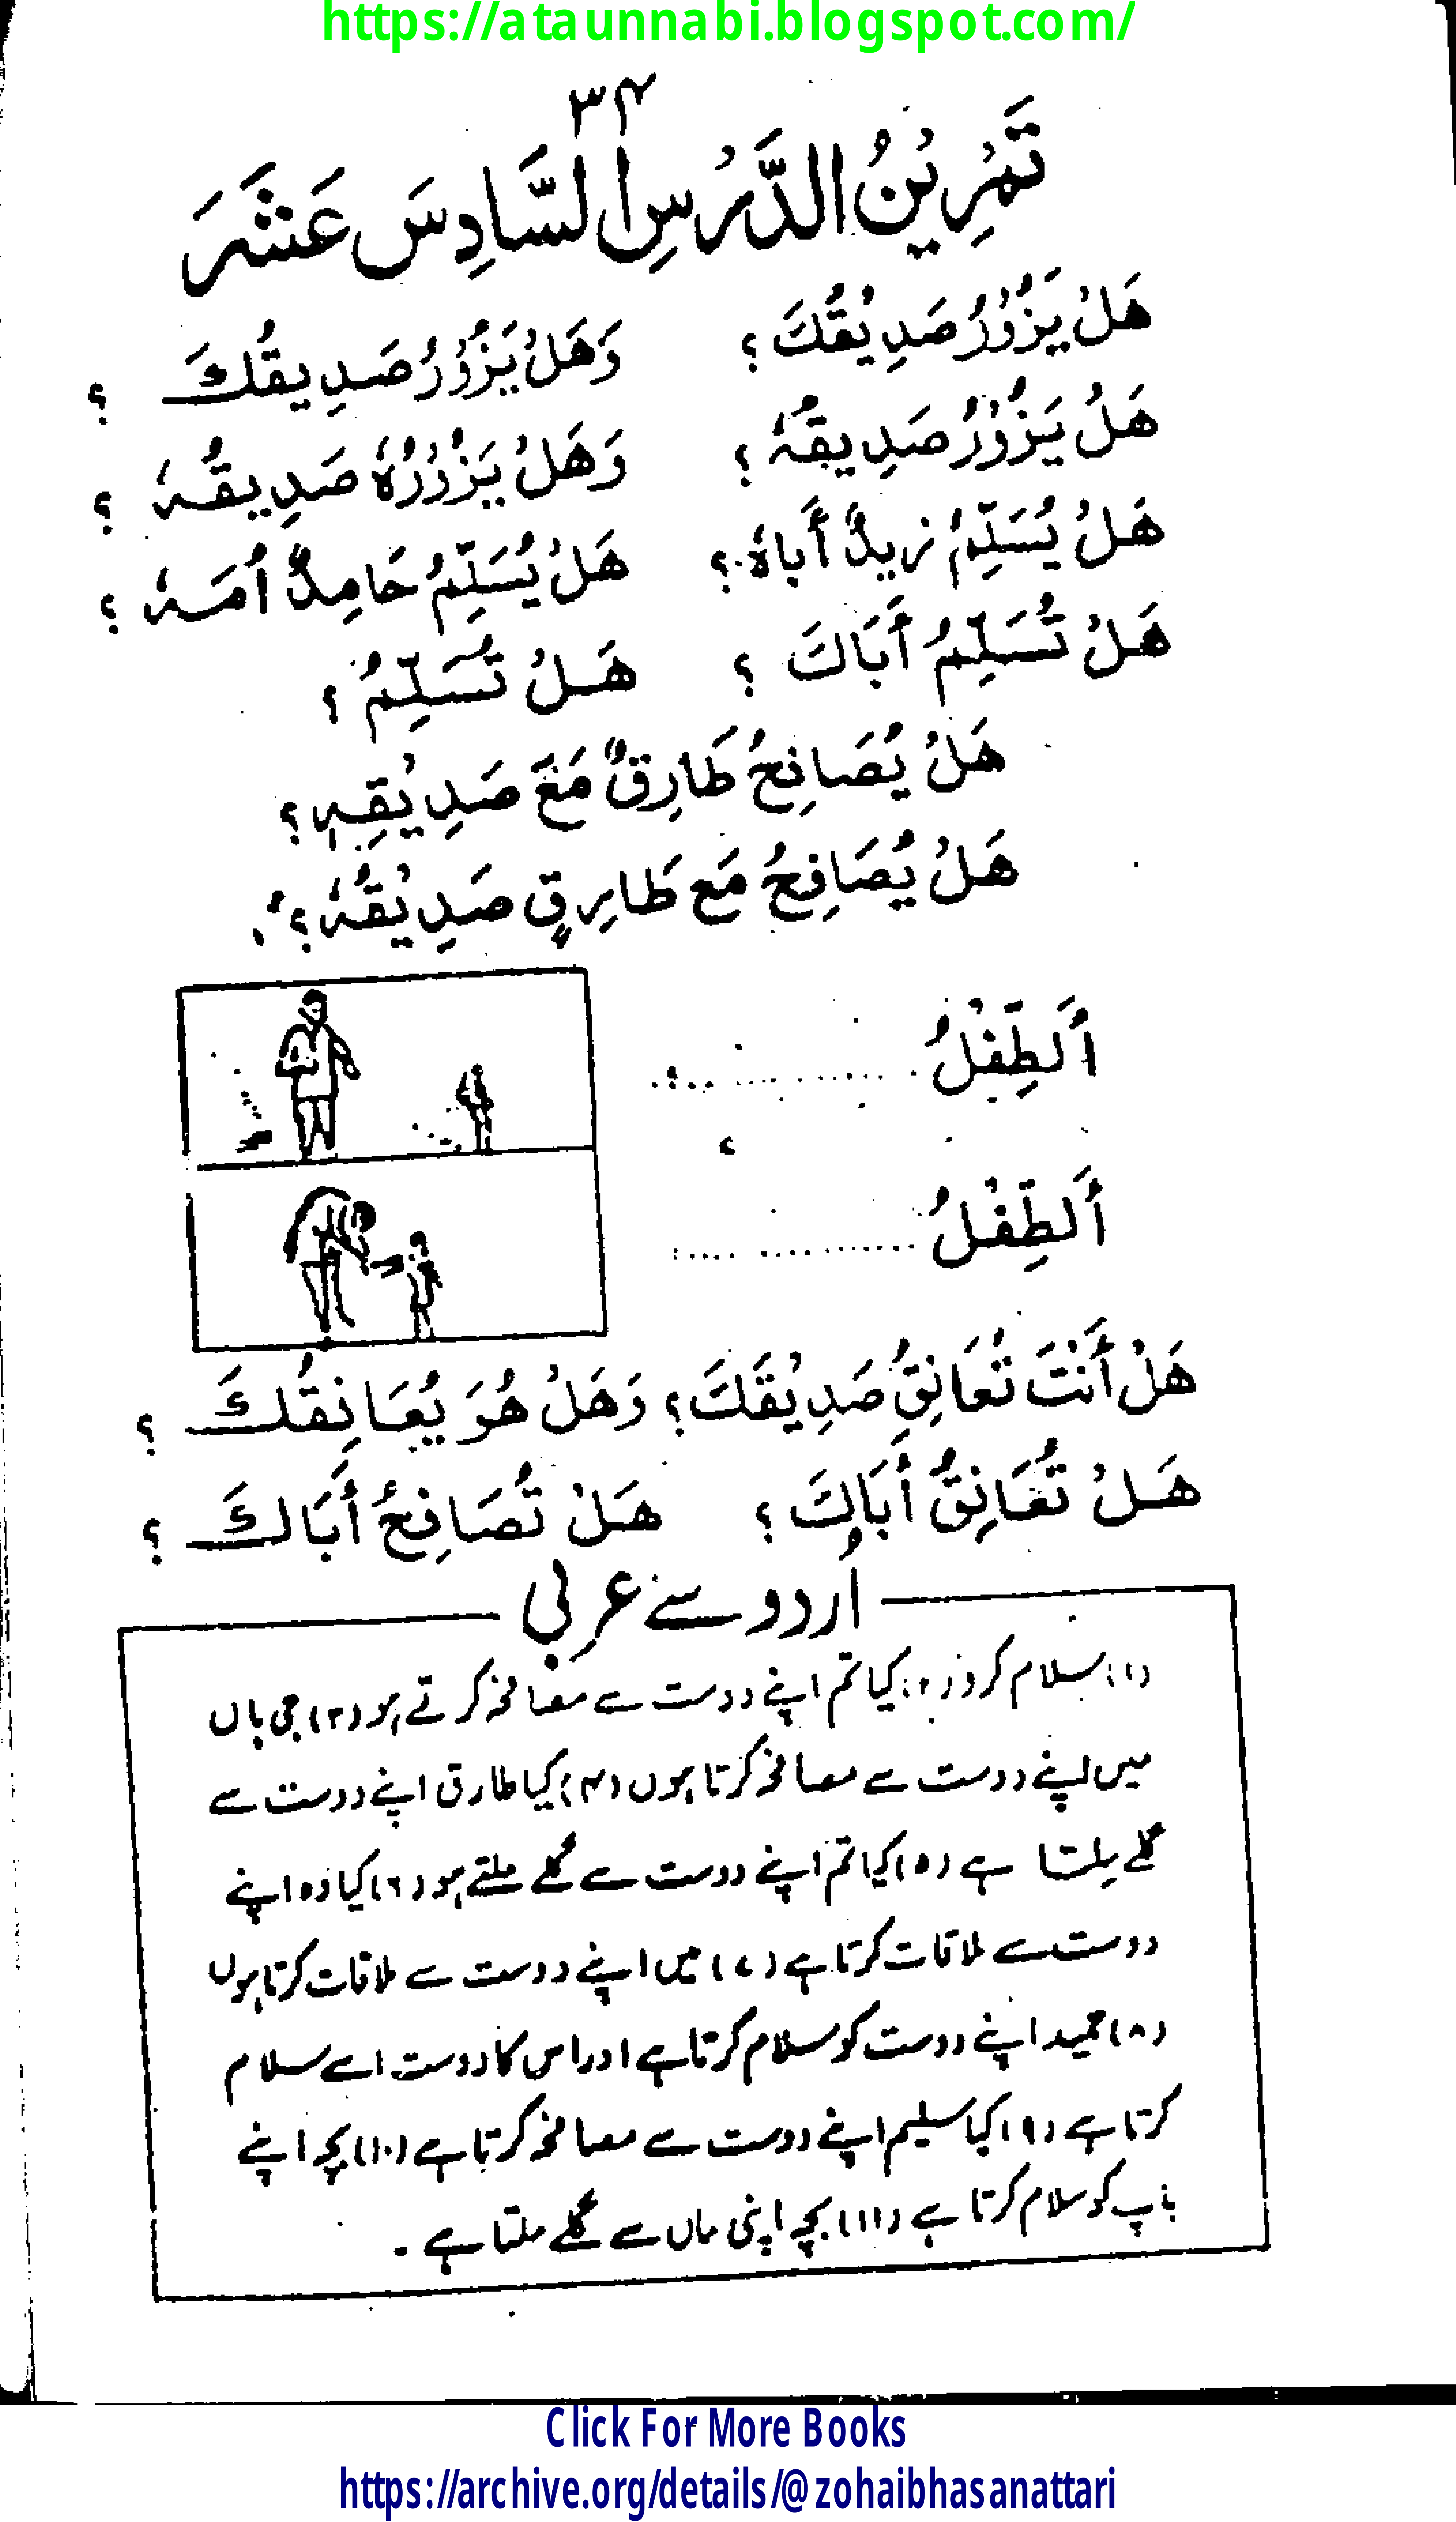 https://ataunnabi.blogspot.com/
۳۴
تَمْرِيْنُ الدَّرْسِ السَّادِسَ عَشَرَ
هَلْ يَزُوْرُ صَدِيْقُكَ ؟ وَهَلْ يَزُوْرُ صَدِيقُكَ ؟
هَلْ يَزُوْرُ صَدِيقُهٗ ؟ وَهَلْ يَزُوْرُهٗ صَدِيقُهٗ ؟
هَلْ يُسَلِّمُ زيدٌ أَباهٗ ؟ هَلْ يُسَلِّمُ حَامِدٌ اُمَهٗ ؟
هَلْ تُسَلِّمُ أَبَاكَ ؟ هَلْ تُسَلِّمُ ؟
هَلْ يُصَافِحُ طَارِقٌ مَعَ صَدِيْقِهٖ ؟
هَلْ يُصَافِحُ مَع طَارِقٍ صَدِيْقُهٗ ؟
أَلطِّفْلُ ..............
أَلطِّفْلُ ..............
هَلْ أَنْتَ تُعَانِقُ صَدِيْقَكَ ؟ وَهَلْ هُوَ يُعَانِقُكَ ؟
هَلْ تُعَانِقُ أَبَاكَ ؟ هَلْ تُصَافِحُ أَبَاكَ ؟
اُردو سے عربی
(۱) سلام کرو (۲) کیا تم اپنے دوست سے مصافحہ کرتے ہو (۳) جی ہاں
میں اپنے دوست سے مصافحہ کرتا ہوں (۴) کیا طارق اپنے دوست سے
گلے ملتا ہے (۵) کیا تم اپنے دوست سے گلے ملتے ہو (۶) کیا وہ اپنے
دوست سے ملاقات کرتا ہے (۷) میں اپنے دوست سے ملاقات کرتا ہوں
(۸) حمید اپنے دوست کو سلام کرتا ہے اور اس کا دوست اسے سلام
کرتا ہے (۹) کیا سلیم اپنے دوست سے مصافحہ کرتا ہے (۱۰) بچہ اپنے
باپ کو سلام کرتا ہے (۱۱) بچہ اپنی ماں سے گلے ملتا ہے ۔
Click For More Books
https://archive.org/details/@zohaibhasanattari